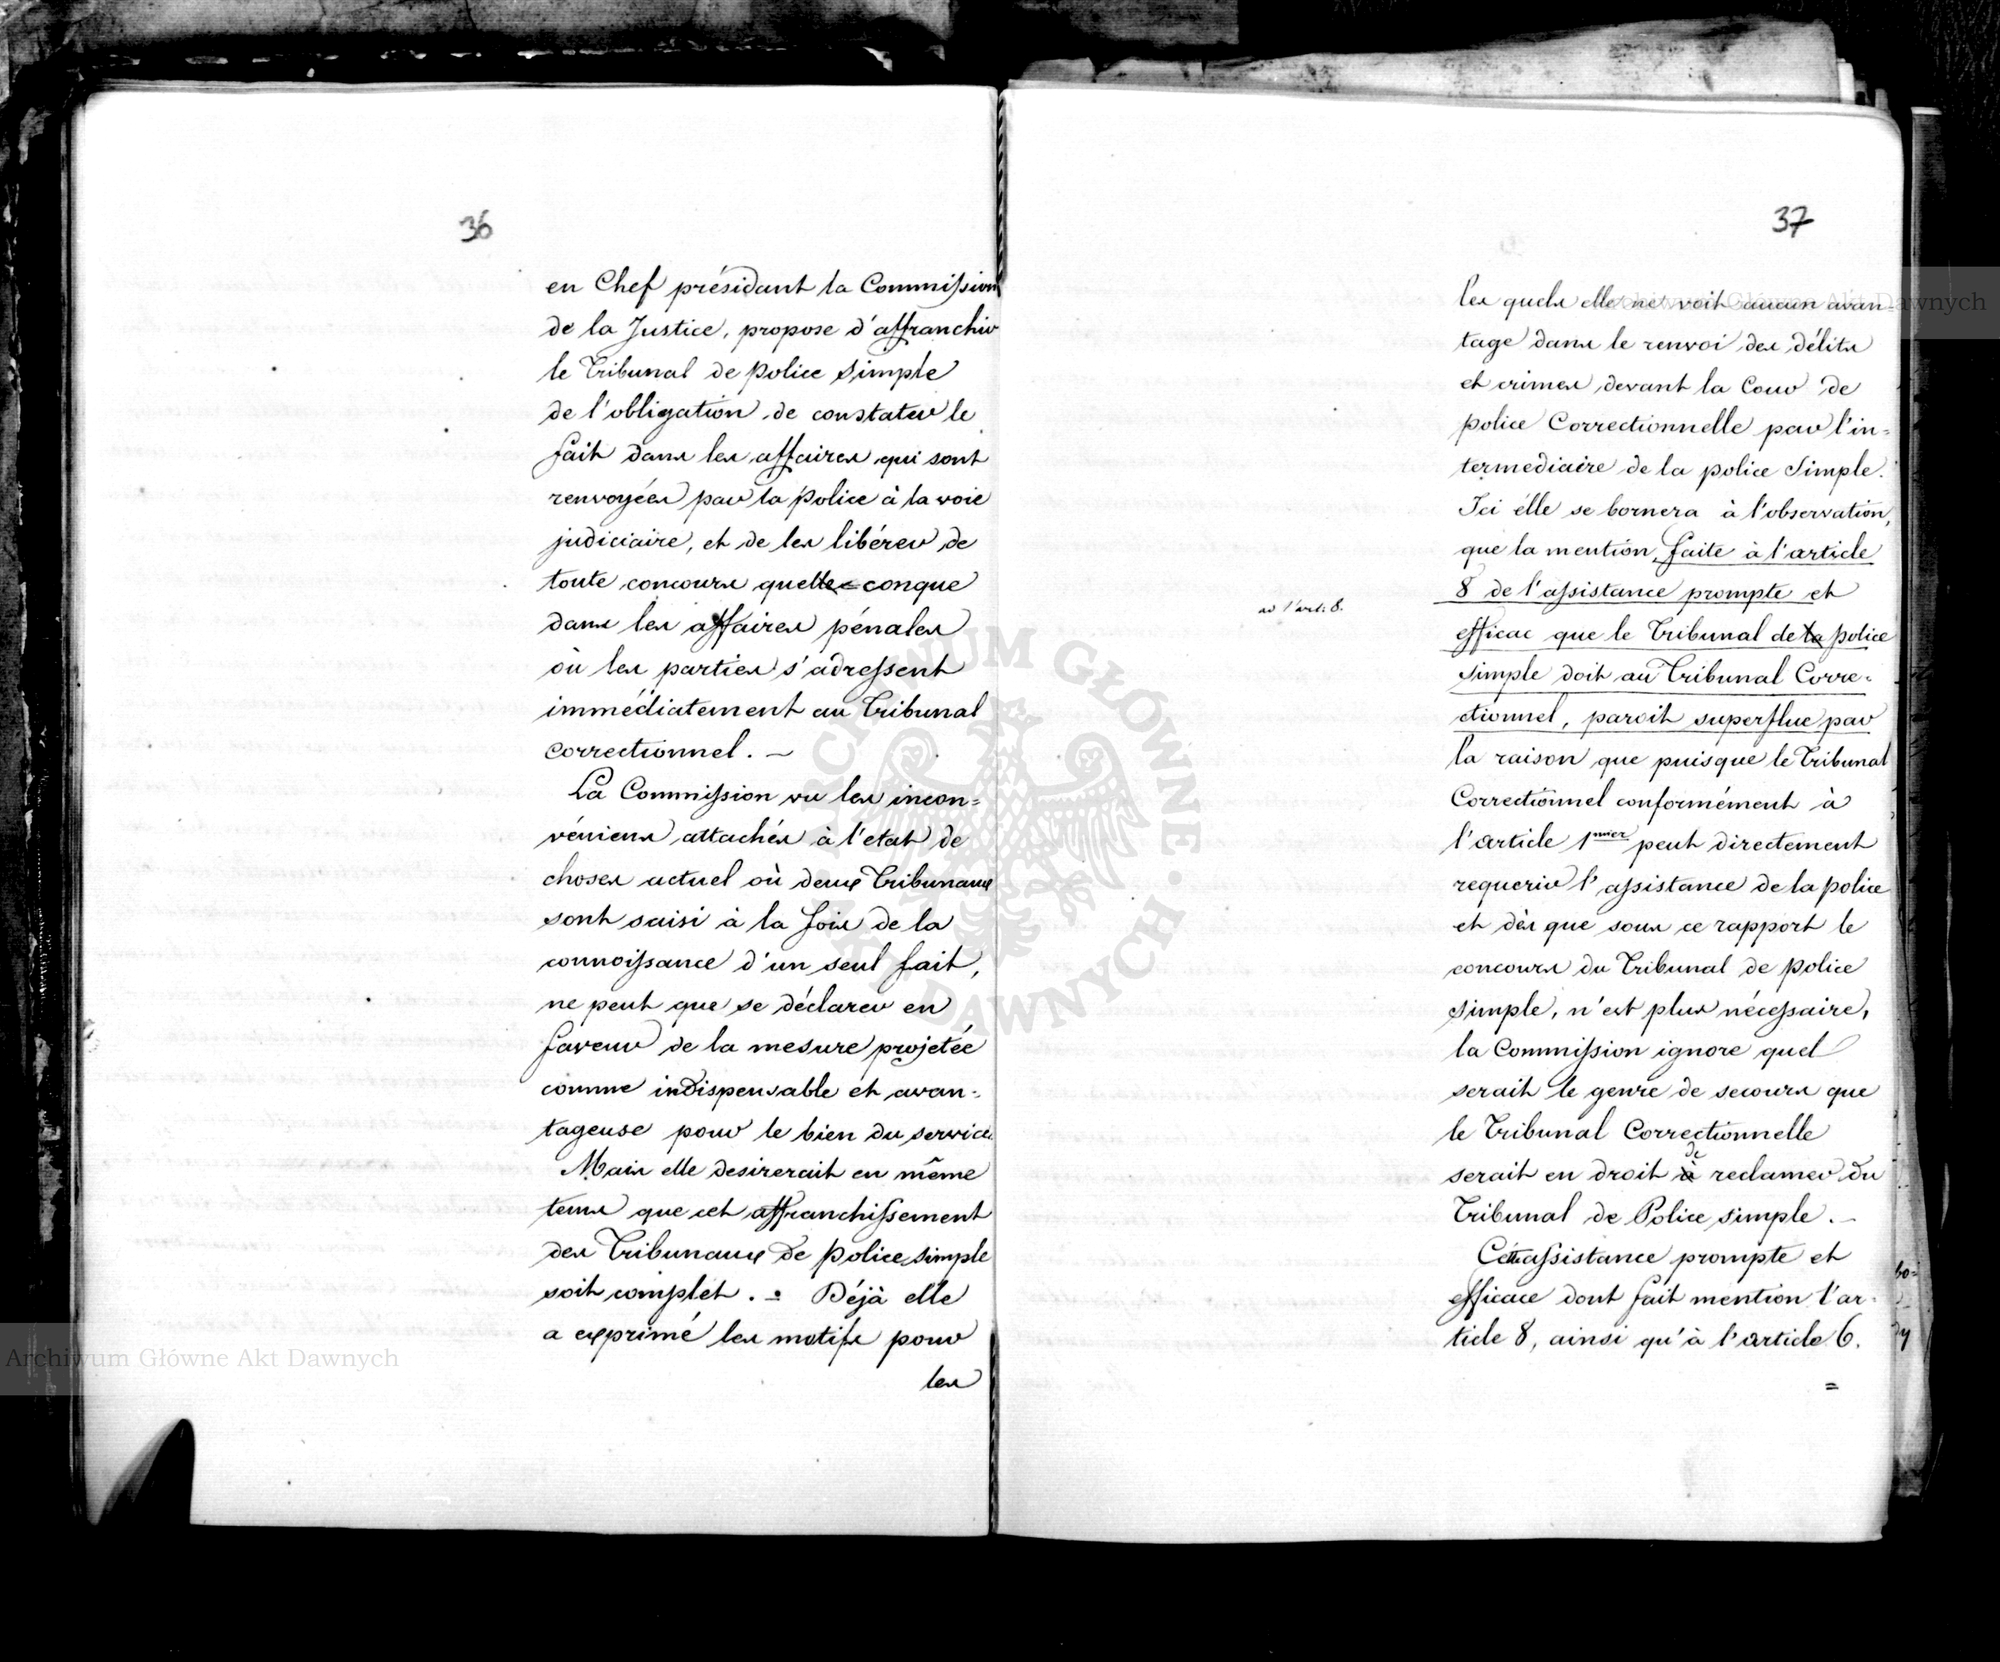 36
en Chef présidant la Commission
de la Justice, propose d'affranchir
le Tribunal de Police simple
de l'obligation de constater le
fait dans les affaires qui sont
renvoyées par la Police à la voie
judiciaire, et de les libérer de
toute concours quelle=conque
dans les affaires pénales
où les parties s'adressent
immédiatement au Tribunal
correctionnel. —
La Commission vu les incon=
véniens attachés à l'etat de
choses actuel où deux Tribunaux
sont saisi à la fois de la
connoissance d'un seul fait,
ne peut que se déclarer en
faveur de la mesure projetée
comme indispensable et avan=
tageuse pour le bien du service
Mais elle desirerait en même
tems que cet affranchissement
des Tribunaux de Police simple
soit complèt. = Déjà elle
a exprimé les motifs pour
les
37
les quels elle ne voit aucun avan=
tage dans le renvoi des délits
et crimes devant la Cour de
police Correctionnelle par l'in=
termediaire de la police Simple.
Ici elle se bornera à l'observation,
que la mention faite à l'article
8 de l'assistance prompte et
ad l'art: 8.
efficac que le Tribunal de la police
simple doit au Tribunal Corre=
ctionnel, paroit superflue par
la raison que puisque le Tribunal
Correctionnel conformément à
l'article 1mier peut directement
requerir l'assistance de la police
et dès que sous ce rapport le
concours du Tribunal de Police
simple, n'est plus nécessaire,
la Commission ignore quel
serait le genre de secours que
le Tribunal Correctionnelle
serait en droit à de reclamer du
Tribunal de Police simple. —
Cette assistance prompte et
efficace dont fait mention l'ar=
ticle 8, ainsi qu'à l'article 6.
=
Archiwum Główne Akt Dawnych
Archiwum Główne Akt Dawnych
ARCHIWUM GŁÓWNE AKT DAWNYCH